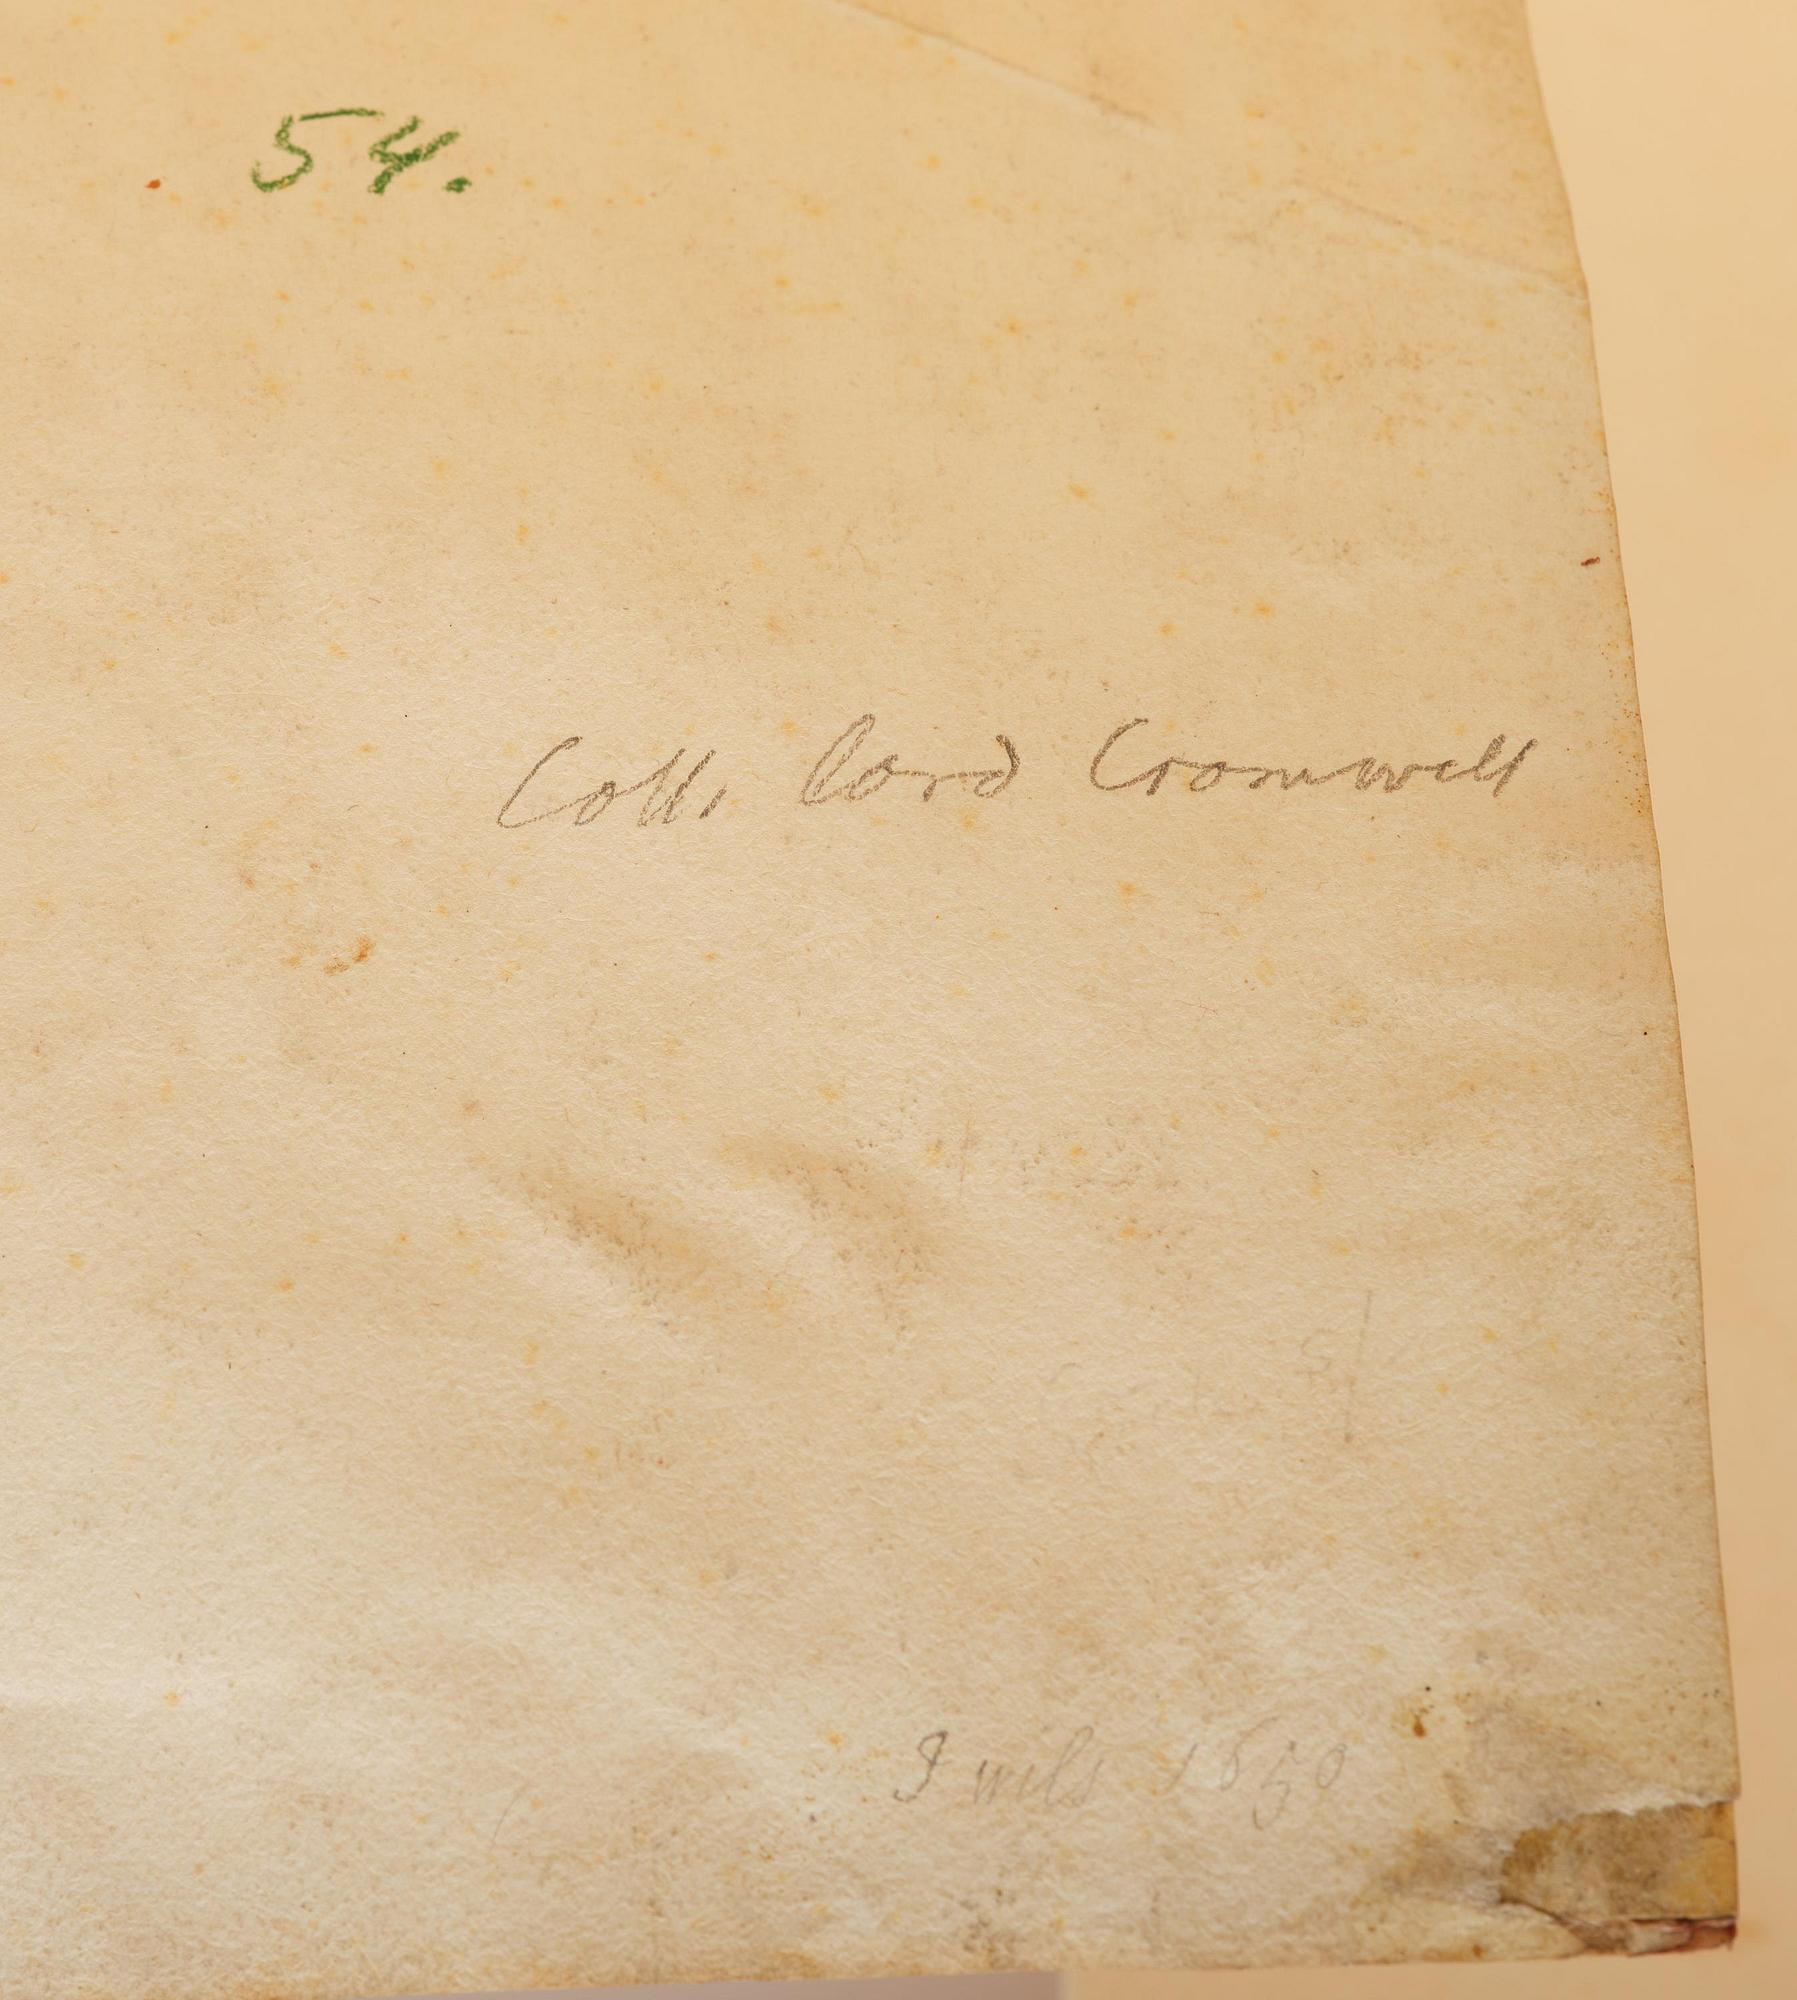 54.
Coll. Lord Cromwell
J wils 1850